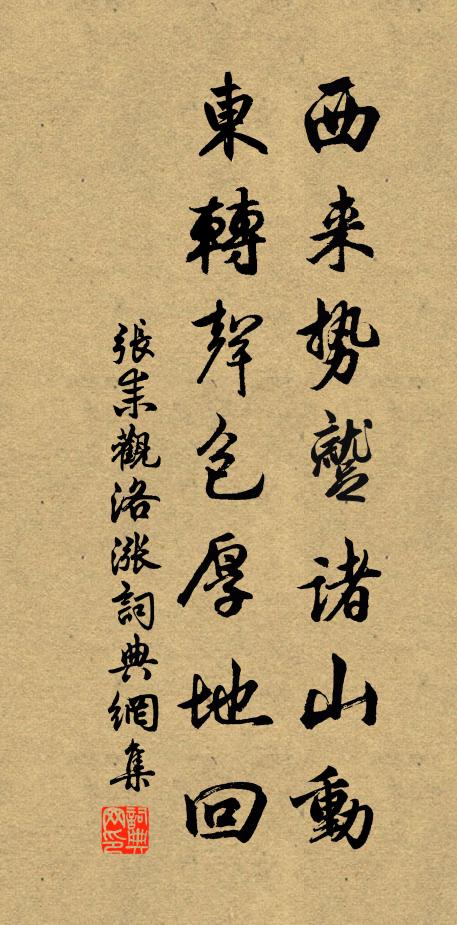 西来势蹙诸山動
東轉聲包厚地回
張耒觀洛漲詞典網集
詞典网印